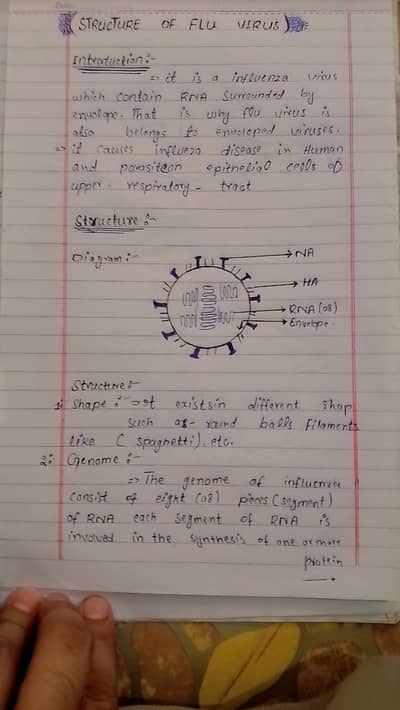 STRUCTURE OF FLU VIRUS
Introduction :-
⇒ it is a influenza virus
which contain RNA surrounded by
envelope. That is why flu virus is
also belongs to enveloped viruses.
⇒ it causes influeza disease in Human
and parasite on epithelial cells of
upper - respiratory - tract
Structure :-
Diagram :-
NA
HA
RNA (08)
Envelope.
Structure :-
1: Shape :- ⇒ It existsin different shap
such as - round balls Filaments
like ( spaghetti). etc.
2: Genome :-
⇒ The genome of influenza
consist of eight (08) pieces (segment)
of RNA each segment of RNA is
involved in the synthesis of one or more
protein